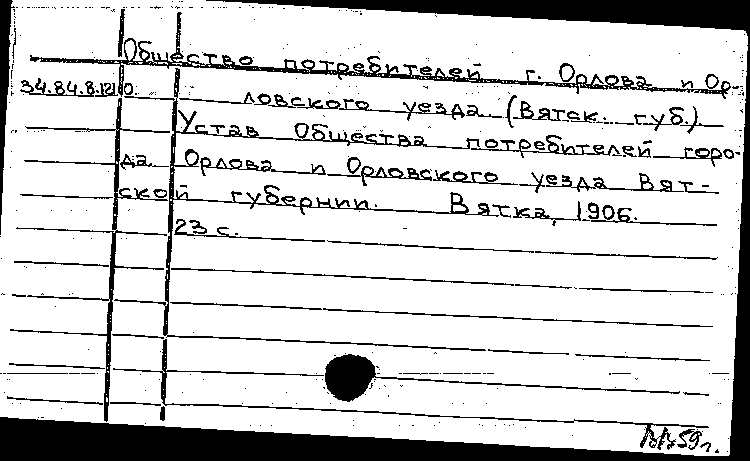 Общество потребителей г. Орлова и Ор-
34.84.8.1210.
ловского уезда (Вятск. губ.).
Устав Общества потребителей горо-
да Орлова и Орловского уезда Вят-
ской губернии. Вятка, 1906.
23 с.